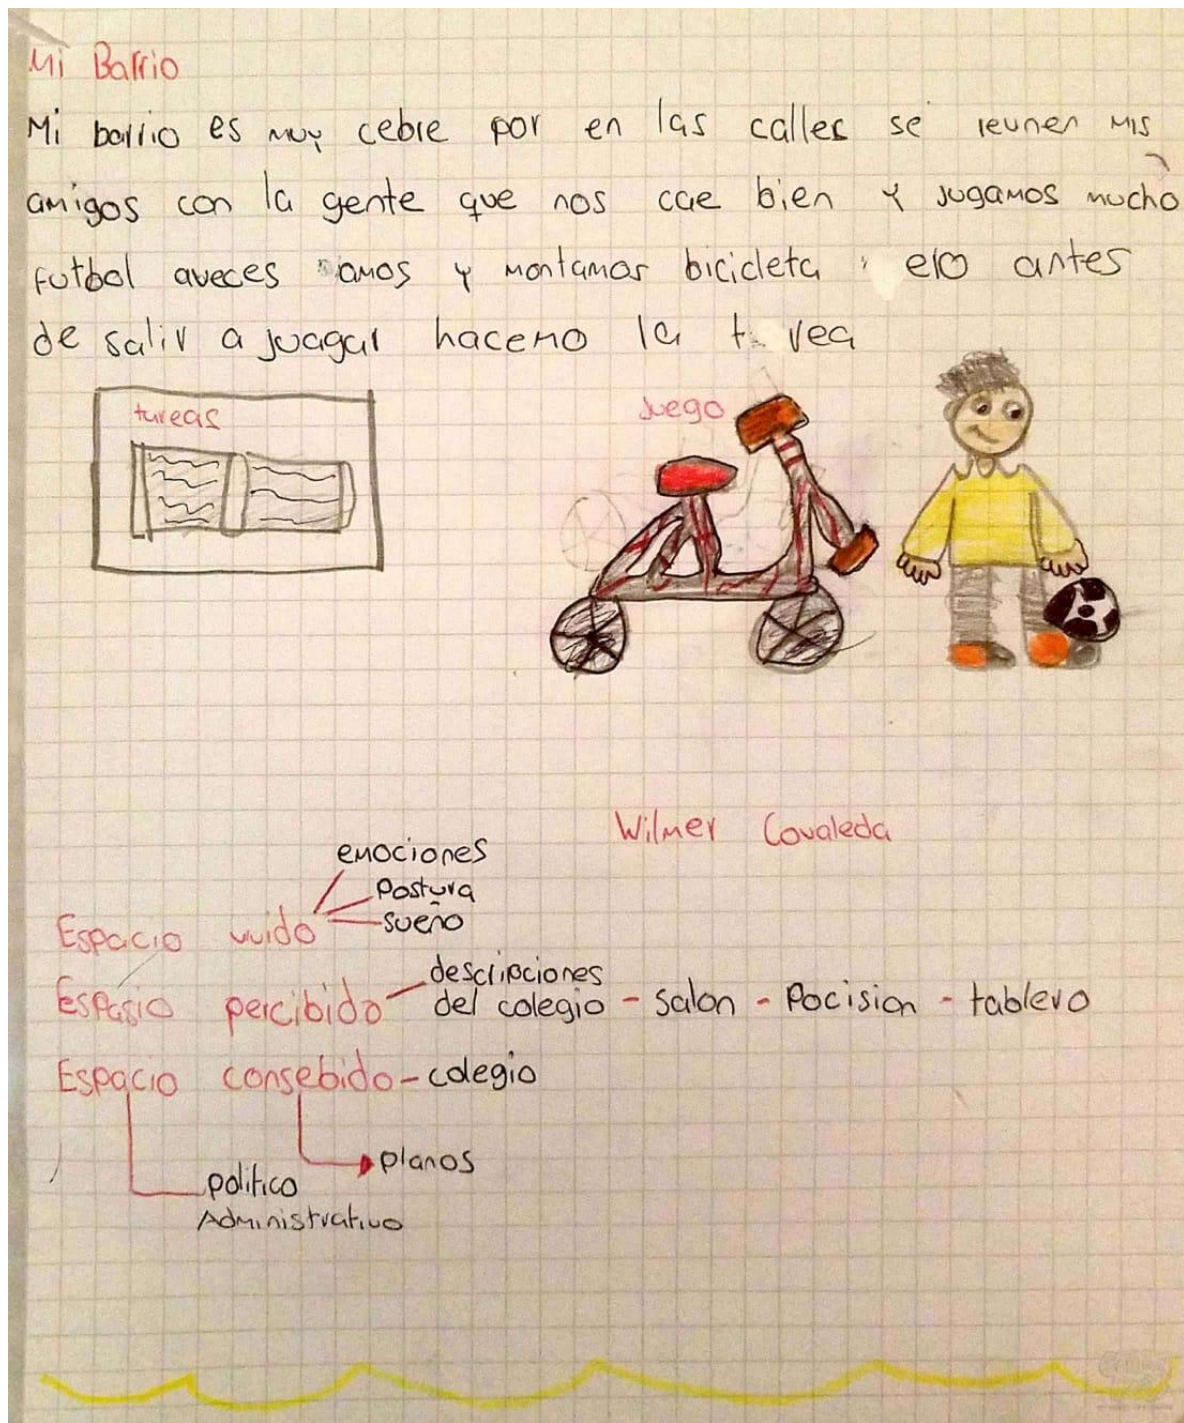 Mi Barrio
Mi barrio es muy cebre por en las calles se reunen mis
amigos con la gente que nos cae bien y jugamos mucho
futbol aveces amos y montamos bicicleta ero antes
de salir a juagar hacemo la t rea
tareas
Juego
Wilmer Covaleda
emociones
Postura
sueño
Espacio vivido
descripciones
Espasio percibido del colegio - salon - Pocision - tablero
Espacio consebido - colegio
planos
politico
Administrativo